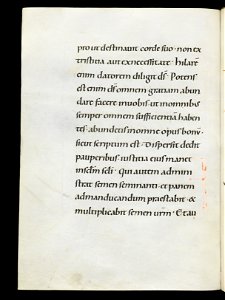 prout destinavit corde suo · non ex
tristitia aut ex necessitate · hilarē
enim datorem diligit ds̄ · Potens
est enim ds̄ omnem gratiam abun
dare facere in vobis · ut in omnibus
semper omnem sufficientiam haben
tes · abundetis in omne opus bonū ·
sicut scriptum est · Dispersit dedit
pauperibus iustitia eius manet
in sclm̄ scl̄i · Qui autem admini
strat semen seminanti · et panem
ad manducandum praestabit · &
multiplicabit semen vrm̄ · & au